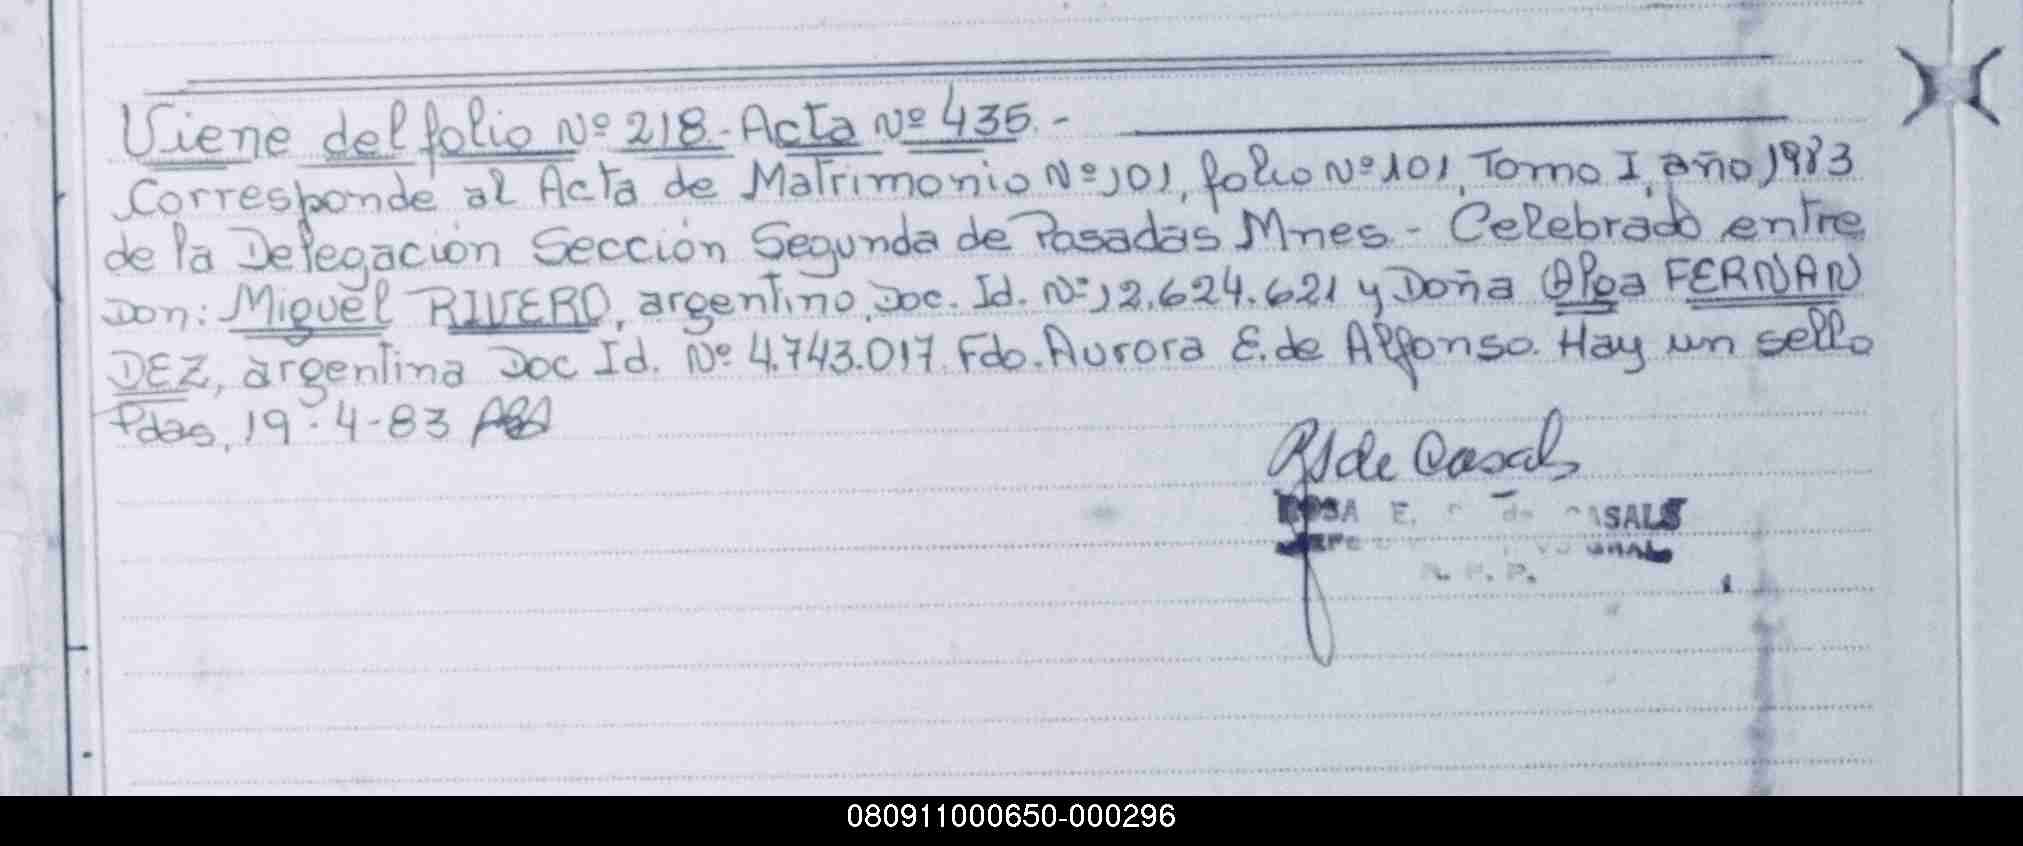 Viene del folio Nº 218.- Acta Nº 435.-
Corresponde al Acta de Matrimonio Nº 101, folio Nº 101, Tomo I, año 1983
de la Delegación Sección Segunda de Posadas Mnes - Celebrado entre
Don: Miguel RIVERO, argentino, Doc. Id. Nº 12.624.621 y Doña Olga FERNAN
DEZ, argentina Doc Id. Nº 4.743.017. Fdo. Aurora E. de Alfonso. Hay un sello
Pdas, 19-4-83
de Casals
ROSA E. de CASALS
080911000650-000296